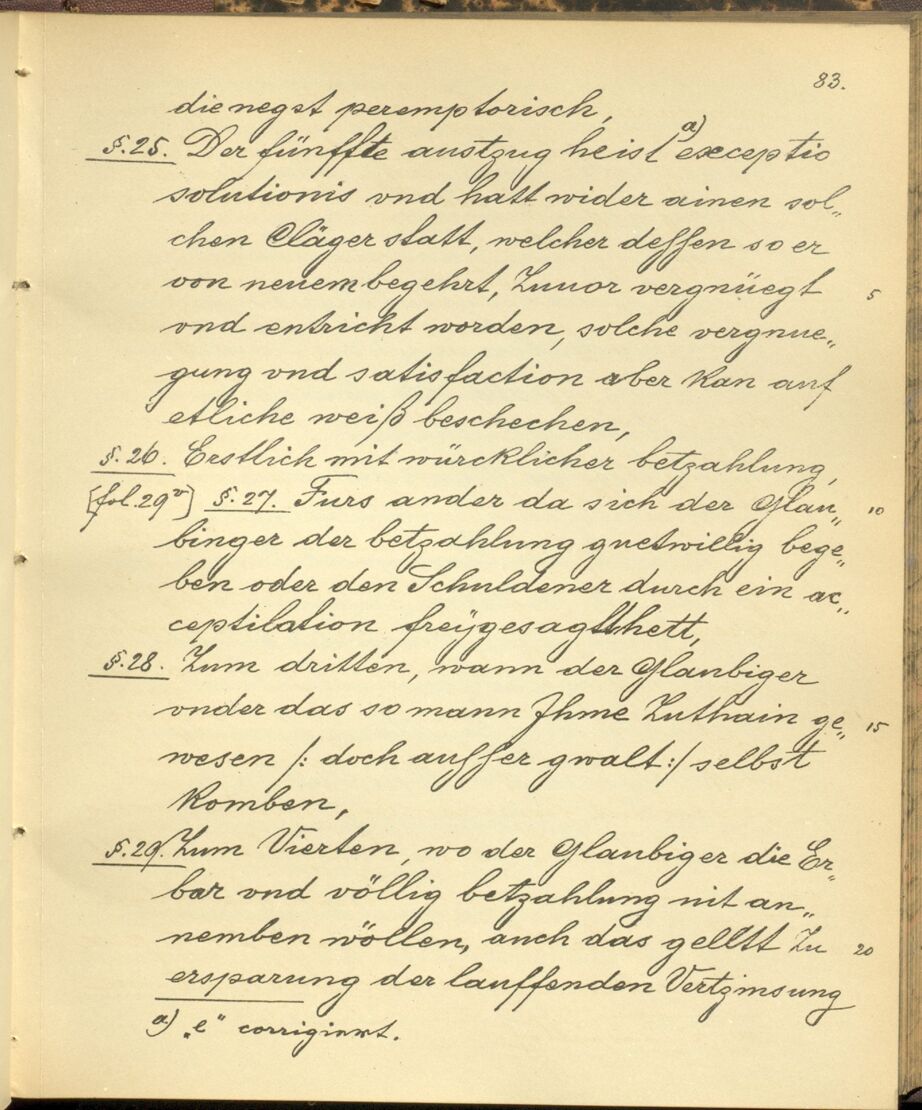 83.
die negst peremptorisch,
§.25. Der fünffte austzug heist a) exceptio
solutionis vnd hatt wider ainen sol„
chen Cläger statt, welcher dessen so er
von neuem begehrt, Zuuor vergnüegt 5
vnd entricht worden, solche vergnue„
gung vnd satisfaction aber kan auf
etliche weiß beschechen,
§.26. Erstlich mit würcklicher betzahlung,
[fol.29v] §.27. Furs ander da sich der Glau„ 10
binger der betzahlung guetwillig bege„
ben oder den Schuldener durch ein ac„
ceptilation freÿgesagtt hett,
§.28. Zum dritten, wann der Glaubiger
vnder das so mann Jhme Zuthain ge„ 15
wesen /: doch ausser gwalt :/ selbst
komben,
§.29. Zum Vierten, wo der Glaubiger die Er„
bar vnd völlig betzahlung nit an„
nemben wöllen, auch das gelltt Zu 20
ersparung der lauffenden Vertzinsung
a) „e“ corrigiert.